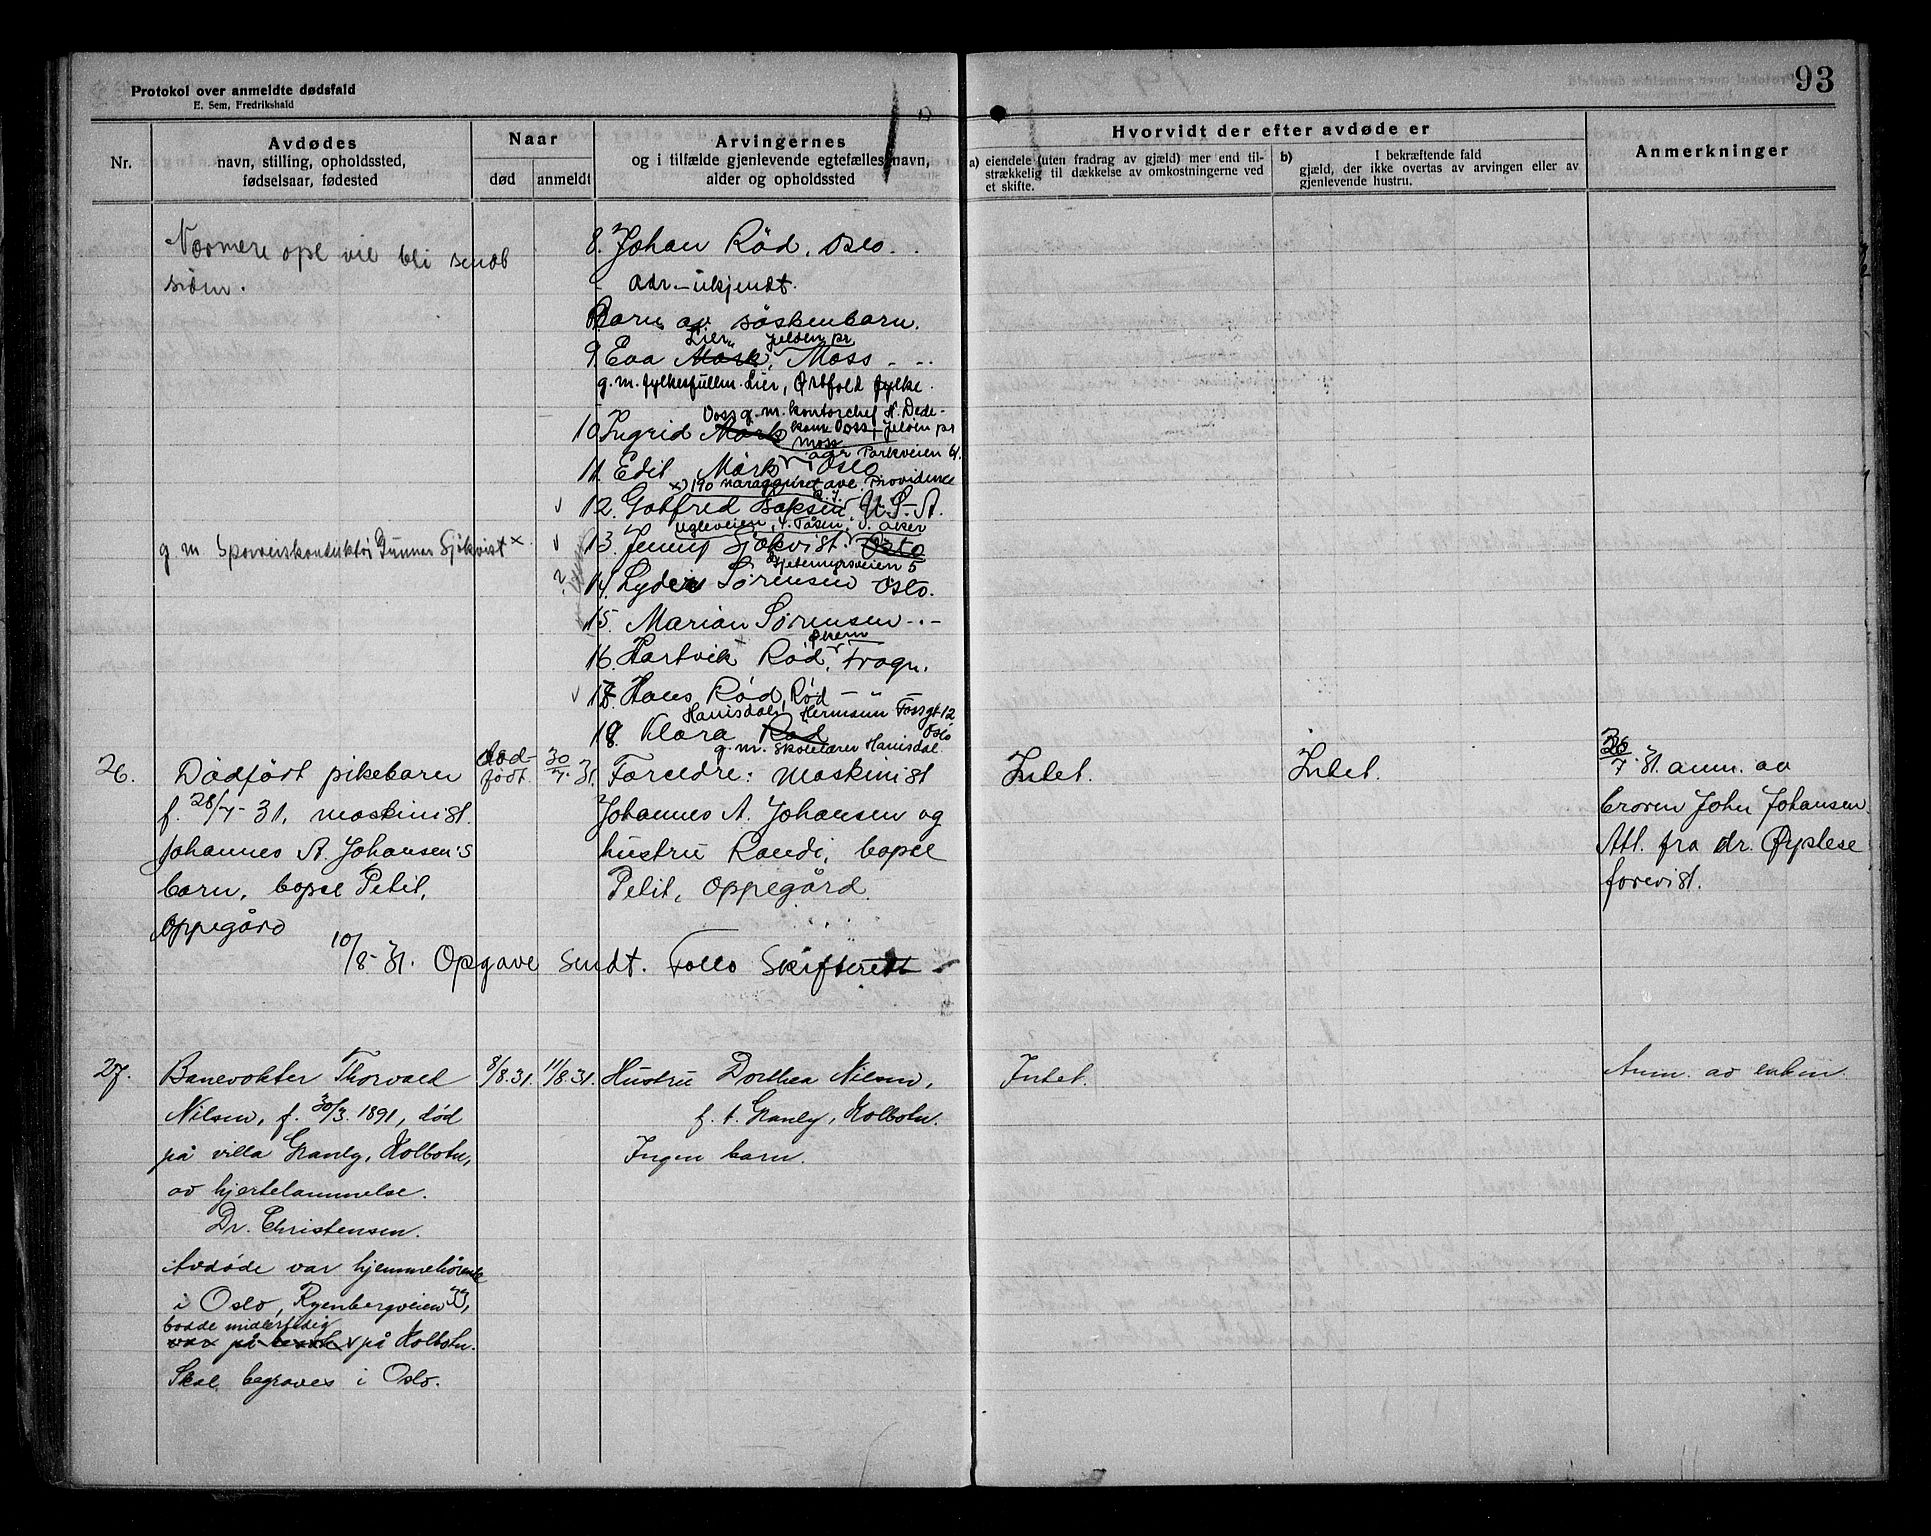 Protokol over anmeldte dødsfald
E. Sem, Fredrikshald
93
Nr.
Avdødes
navn, stilling, opholdssted,
fødselsaar, fødested
Naar
død
anmeldt
Arvingernes
og i tilfælde gjenlevende egtefælles navn,
alder og opholdssted
Hvorvidt der efter avdøde er
a) eiendele (uten fradrag av gjæld) mer end til-
strækkelig til dækkelse av omkostningerne ved
et skifte.
b) I bekræftende fald
gjæld, der ikke overtas av arvingen eller av
gjenlevende hustru.
Anmerkninger
Nærmere opl vil bli sendt
siden.
8. Johan Rød, Oslo.
adr. ukjendt.
Barn av søskenbarn.
Lier, Jeløen pr
9. Eva Mørk, Moss
g. m. fylkesfullm. Lier, Østfold fylke.
Voss g. m. kontorchef N. Dede-
10 Ingrid Mørk kam Voss, Jeløen pr
Moss
adr Parkveien 61.
11. Edit Mørk Oslo
x) 190 Naraganset ave. Providence
R. J.
12. Gotfred U. S. A.
Ugleveien 4, Tåsen, V. Aker
g m Sporveiskonduktør Gunnar Sjøkvist x
13. Jenny Sjøkvist. Oslo
Gjetemyrsveien 5
14. Lyder Sørensen Oslo.
15. Marian Sørensen
16. Hartvik Rød, Frogn.
18. Hans Rød, Rød
Hanisdal, Hermann Fossgt 12
Oslo
18. Klara Rød
g. m. skolelærer Hanisdal.
26.
Dødfødt pikebarn
f. 28/7-31, maskinist
Johannes A. Johansen's
barn, bopæl Petit,
Oppegård
Død-
født.
30/7-31.
Forældre: Maskinist
Johannes A. Johansen og
hustru Randi, bopæl
Petit, Oppegård.
Intet.
Intet.
30/7-31 anm. av
broren John Johansen.
Att. fra dr. Øystese
forevist.
10/8-31. Opgave sendt. Follo Skifterett
27.
Banevokter Thorvald
Nilsen, f. 30/3. 1891, død
på villa Granly, Kolbotn,
av hjertelammelse.
Dr. Christensen.
Avdøde var hjemmehørende
i Oslo, Ryenbergveien 33,
bodde midlertidig
var på besøk på Kolbotn.
Skal begraves i Oslo.
8/8.31.
11/8.31.
Hustru Dorthea Nilsen,
f. t. Granly, Kolbotn.
Ingen barn.
Intet.
Anm. av enken.